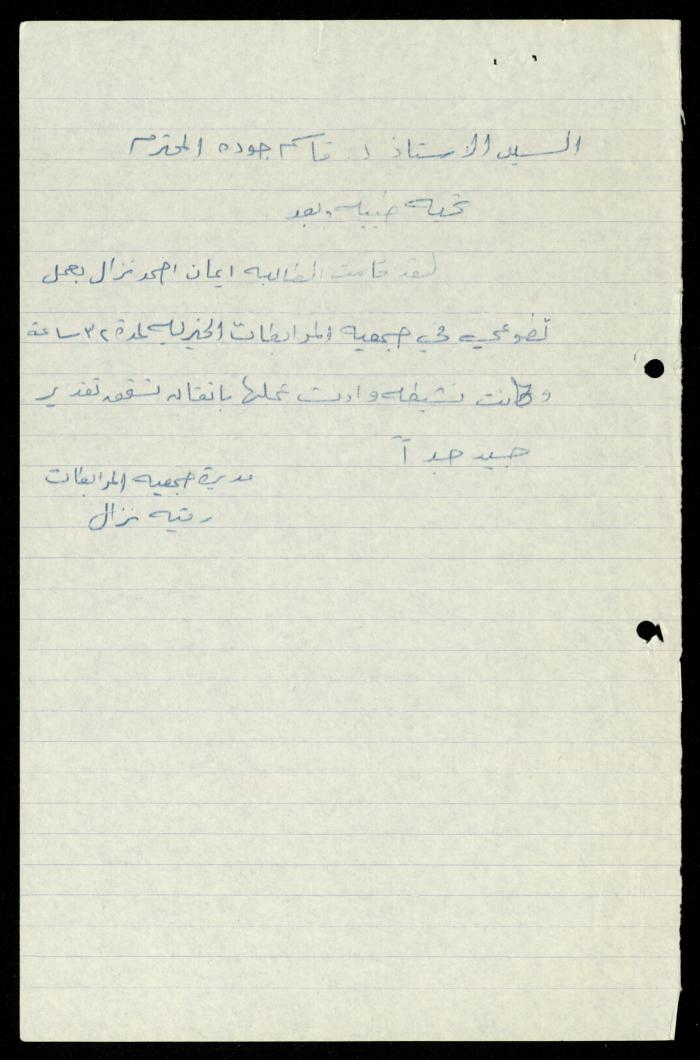 السيد الاستاذ د. قاسم جوده المحترم
تحيه طيبه وبعد
لقد قامت الطالبه ايمان احمد نزال بعمل
تطوعي في جمعيه المرابطات الخيريه لمدة ٣٢ ساعة
وكانت نشيطه وادت عملها باتقان تستحق تقدير
جيد جداً
مديرة جمعيه المرابطات
نزال